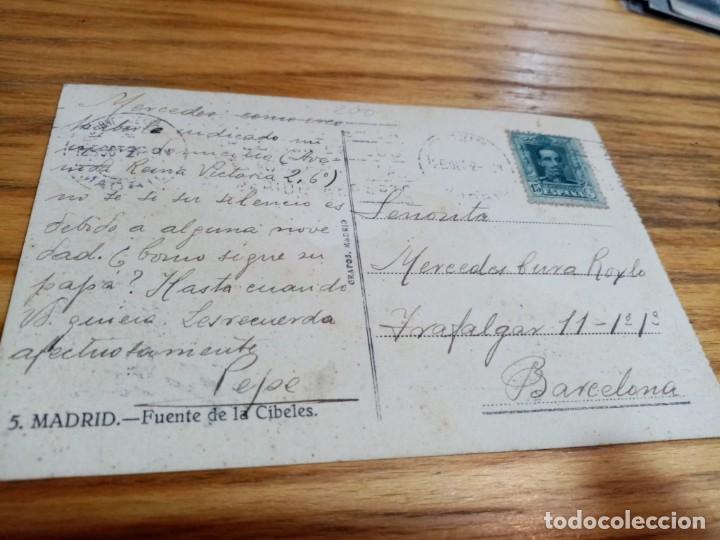 Mercedes: como creo
haberle indicado mi
de (Ave
nida Reina Victoria 2, 6º)
no sé si su silencio es
debido a alguna nove
dad. ¿Como sigue su
papá? Hasta cuando
V. quiera. Les recuerda
afectuosamente
Pepe
5. MADRID.—Fuente de la Cibeles.
GRAFOS. MADRID
15
Señorita
Mercedes Cura Roylo
Trafalgar 11-1º 1ª
Barcelona
todocoleccion
todocoleccion.net